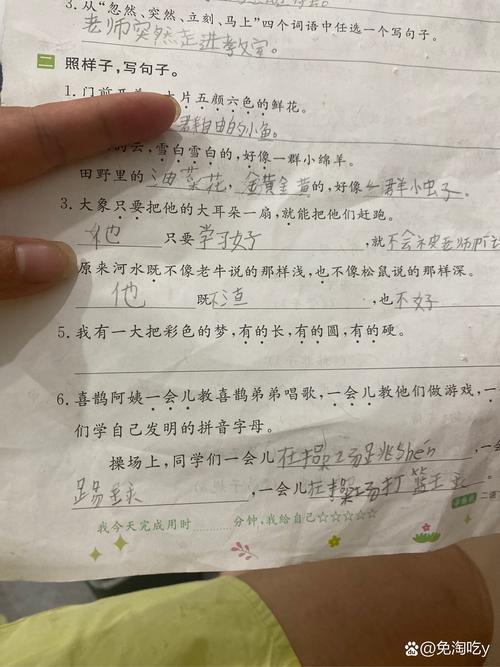 3. 从“忽然、突然、立刻、马上”四个词语中任选一个写句子。
老师突然走进教室。
二 照样子,写句子。
1. 门前开 片五颜六色的鲜花。
群自由的小鱼。
的云,雪白雪白的,好像一群小绵羊。
田野里的油菜花,金黄金黄的,好像一群小虫子。
3. 大象只要把他的大耳朵一扇,就能把他们赶跑。
他 只要学习好,就不会被老师
原来河水既不像老牛说的那样浅,也不像松鼠说的那样深。
他 既不渣,也不好
5. 我有一大把彩色的梦,有的长,有的圆,有的硬。
6. 喜鹊阿姨一会儿教喜鹊弟弟唱歌,一会儿教他们做游戏,一
们学自己发明的拼音字母。
操场上,同学们一会儿在操场 shén,一会
踢 ,一会儿在操场打篮
我今天完成用时 分钟,我给自己☆☆☆☆☆
二
兔淘吃y